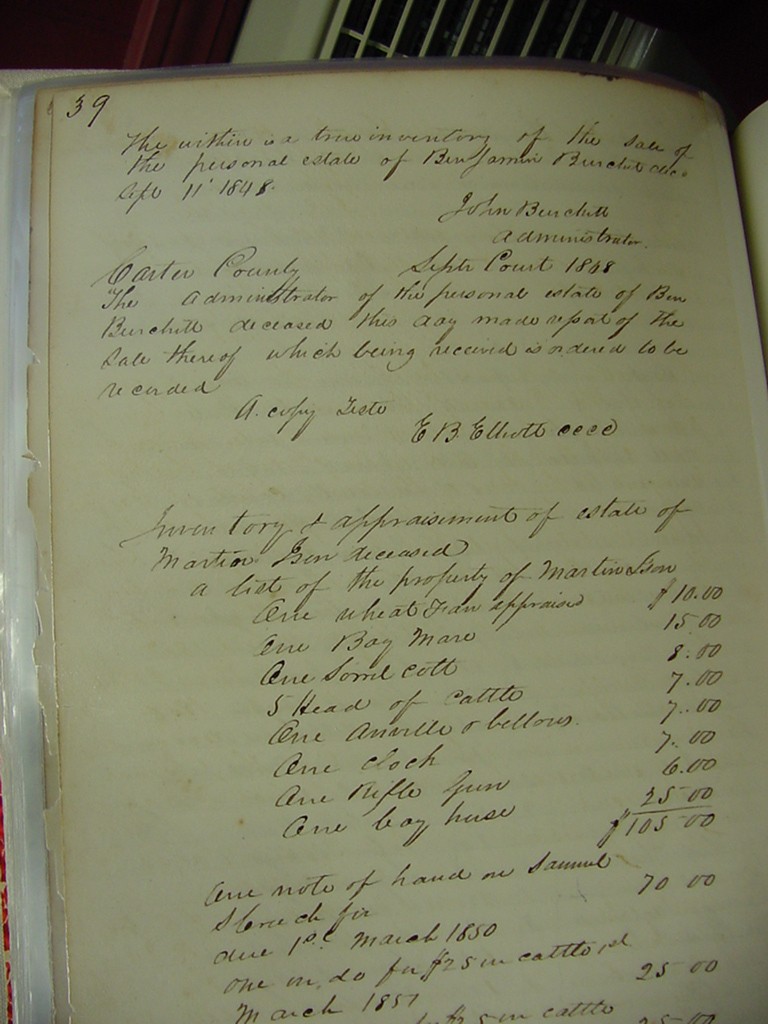 39
The within is a true inventory of the sale of
the personal estate of Benjamin Burchett decd
Sept 11 1848.
John Burchett
administrator.
Carter County Septr Court 1848
The administrator of the personal estate of Ben
Burchett deceased this day made report of the
sale thereof which being received is ordered to be
recorded
A. copy Teste
E B. Elliott cccc
Inventory & appraisement of estate of
Martin deceased
a list of the property of Martin
One wheat Fan appraised $10.00
One Bay Mare 15.00
One Sorrel colt 8.00
5 Head of cattle 7.00
One Anville & bellows. 7.00
One clock 7.00
One Rifle Gun 6.00
One bay horse 25 00
$105 00
One note of hand on Samuel
for 70 00
due 1st March 1850
one on do for $25 in cattle 1st
March 1851 25 00
$25 in cattle 25 00